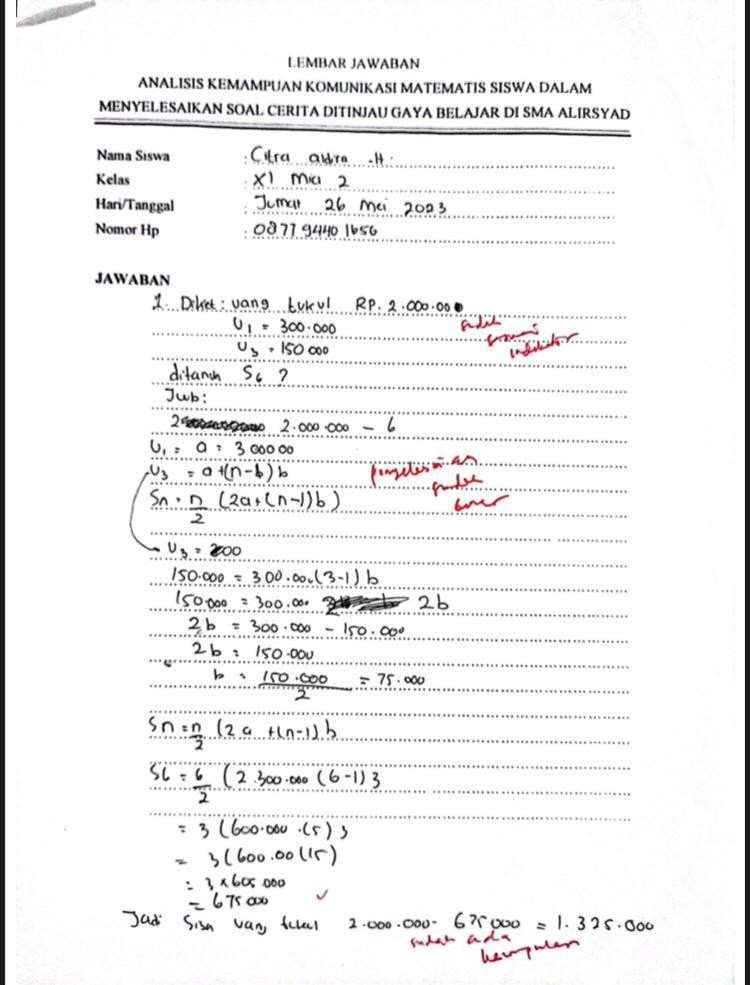 LEMBAR JAWABAN
ANALISIS KEMAMPUAN KOMUNIKASI MATEMATIS SISWA DALAM
MENYELESAIKAN SOAL CERITA DITINJAU GAYA BELAJAR DI SMA ALIRSYAD
Nama Siswa : Citra .H.
Kelas : XI Mia 2
Hari/Tanggal : Jumat 26 Mei 2023
Nomor Hp : 0877 9440 1656
JAWABAN
1. Diket : uang tukul RP. 2.000.000
U1 = 300.000
sudah sesuai indikator
U3 = 150 000
ditanya S6 ?
Jwb:
2.000.000 - 6
U1 = a = 300000
U3 = a+(n-1)b
penyelesaian sudah benar
Sn = n/2 (2a+(n-1)b)
U3 = 200
150.000 = 300.00.(3-1) b
150.000 = 300.000 2b
2b = 300.000 - 150.000
2b = 150.000
b = 150.000/2 = 75.000
Sn = n/2 (2a +(n-1) b
S6 = 6/2 (2.300.000 (6-1) 3
= 3 (600.000 .(5) 3
= 3(600.00 (15)
= 3 x 605.000
= 675 000 ✓
Jadi sisa uang tukul 2.000.000- 675000 = 1.325.000
sudah ada kesimpulan